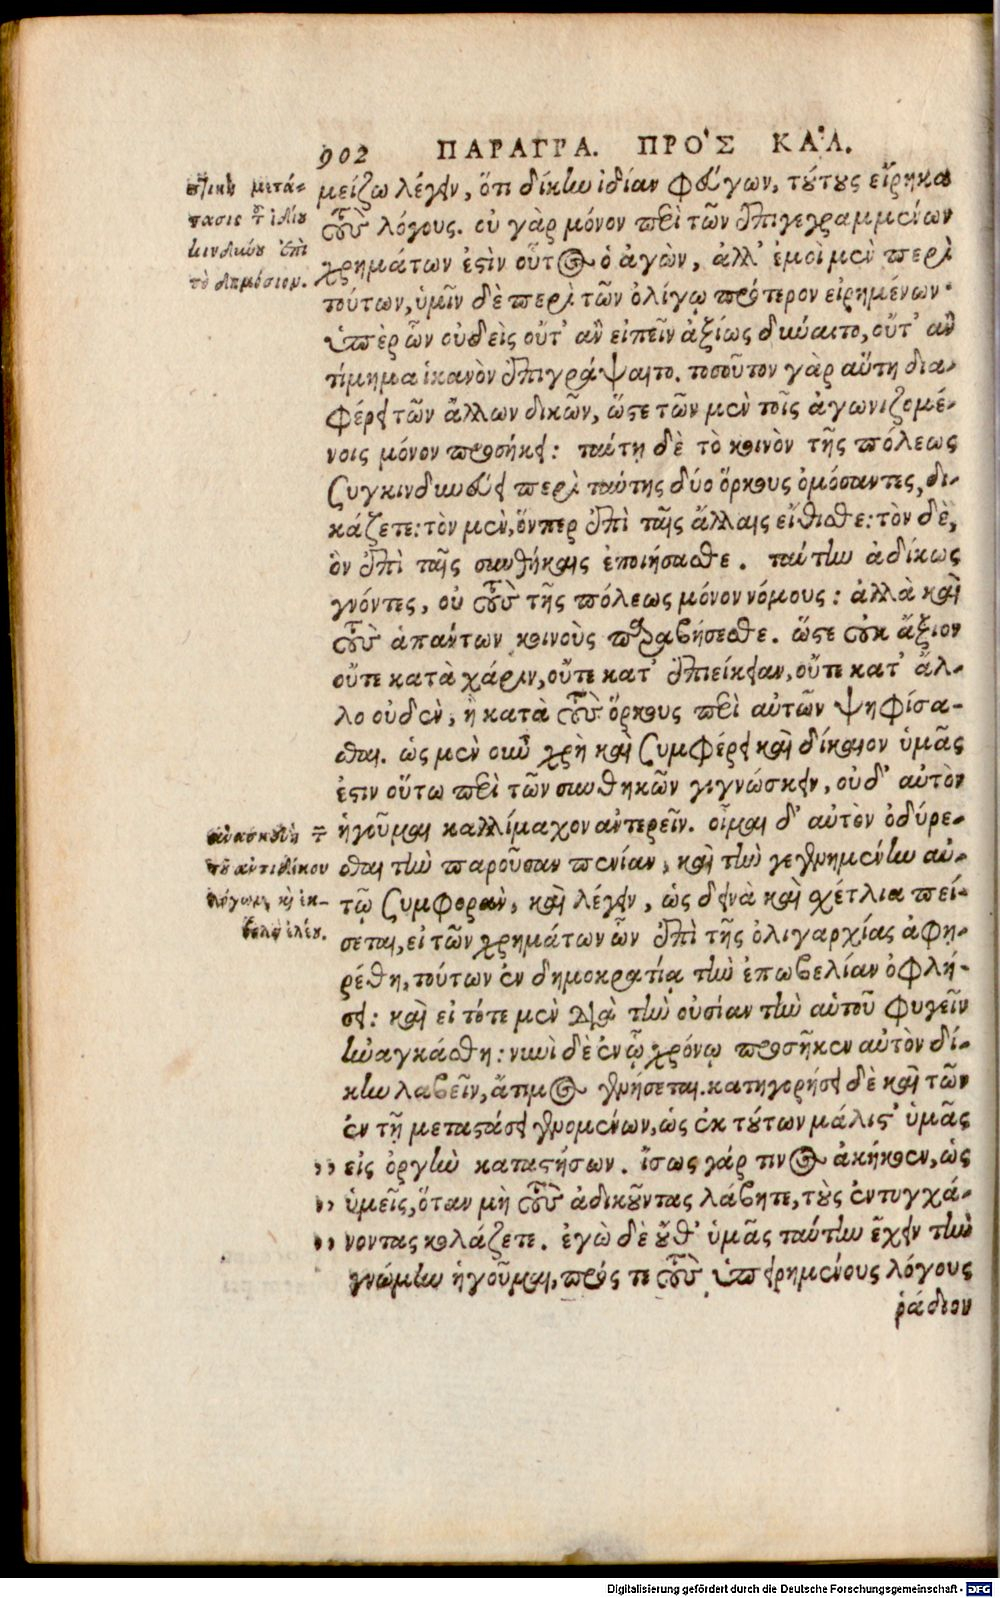 902 ΠΑΡΑΓΡΑ. ΠΡΟ῍Σ ΚΑΛ.
μείζω λέγειν, ὅτι δίκην ἰδίαν φεύγων, τούτους εἴρηκα
τοὺς λόγους. οὐ γὰρ μόνον περὶ τῶν ἐπιγεγραμμένων
χρημάτων ἐστὶν οὗτος ὁ ἀγὼν, ἀλλ' ἐμοὶ μὲν περὶ
τούτων, ὑμῖν δὲ περὶ τῶν ὀλίγῳ πρότερον εἰρημένων·
ὑπὲρ ὧν οὐδεὶς οὔτ' ἂν εἰπεῖν ἀξίως δύναιτο, οὔτ' ἂν
τίμημα ἱκανὸν ἐπιγράψαιτο. τοσοῦτον γὰρ αὕτη δια-
φέρει τῶν ἄλλων δικῶν, ὥστε τῶν μὲν τοῖς ἀγωνιζομέ-
νοις μόνον προσήκει: ταύτῃ δὲ τὸ κοινὸν τῆς πόλεως
συγκινδυνεύει περὶ ταύτης δύο ὅρκους ὀμόσαντες, δι-
κάζετε: τὸν μὲν, ὅνπερ ἐπὶ ταῖς ἄλλαις εἴθισθε: τὸν δὲ,
ὃν ἐπὶ ταῖς συνθήκαις ἐποιήσασθε. ταύτην ἀδίκως
γνόντες, οὐ τοὺς τῆς πόλεως μόνον νόμους: ἀλλὰ καὶ
τοὺς ἁπάντων κοινοὺς παραβήσεσθε. ὥστε οὐκ ἄξιον
οὔτε κατὰ χάριν, οὔτε κατ' ἐπιείκειαν, οὔτε κατ' ἄλ-
λο οὐδὲν, ἢ κατὰ τοὺς ὅρκους περὶ αὐτῶν ψηφίσα-
σθαι. ὡς μὲν οὖν χρὴ καὶ συμφέρει καὶ δίκαιον ὑμᾶς
ἐστιν οὕτω περὶ τῶν συνθηκῶν γιγνώσκειν, οὐδ' αὐτὸν
ἡγοῦμαι καλλίμαχον ἀντερεῖν. οἶμαι δ' αὐτὸν ὀδύρε-
σθαι τὴν παροῦσαν πενίαν, καὶ τὴν γεγενημένην αὐ-
τῷ συμφορὰν, καὶ λέγειν, ὡς δεινὰ καὶ σχέτλια πεί-
σεται, εἰ τῶν χρημάτων ὧν ἐπὶ τῆς ὀλιγαρχίας ἀφῃ-
ρέθη, τούτων ἐν δημοκρατίᾳ τὴν ἐπωβελίαν ὀφλή-
σει: καὶ εἰ τότε μὲν διὰ τὴν οὐσίαν τὴν αὑτοῦ φυγεῖν
ἠναγκάσθη: νυνὶ δὲ ἐν ᾧ χρόνῳ προσῆκεν αὐτὸν δί-
κην λαβεῖν, ἄτιμος γενήσεται. κατηγορήσει δὲ καὶ τῶν
ἐν τῇ μεταστάσει γενομένων, ὡς ἐκ τούτων μάλιστ' ὑμᾶς
,, εἰς ὀργὴν καταστήσων. ἴσως γάρ τινος ἀκήκοεν, ὡς
,, ὑμεῖς, ὅταν μὴ τοὺς ἀδικοῦντας λάβητε, τοὺς ἐντυγχά-
,, νοντας κολάζετε. ἐγὼ δὲ οὔθ' ὑμᾶς ταύτην ἔχειν τὴν
γνώμην ἡγοῦμαι, πρός τε τοὺς ὑπειρημένους λόγους
ῥάδιον
μετά-
στασις τοῦ ἰδίου
κινδύνου ἐπὶ
τὸ δημόσιον.
ἀνασκευὴ τῶν
τοῦ ἀντιδίκου
λόγων, καὶ ἐκ-
βολὴ ἐλέου.
Digitalisierung gefördert durch die Deutsche Forschungsgemeinschaft - DFG